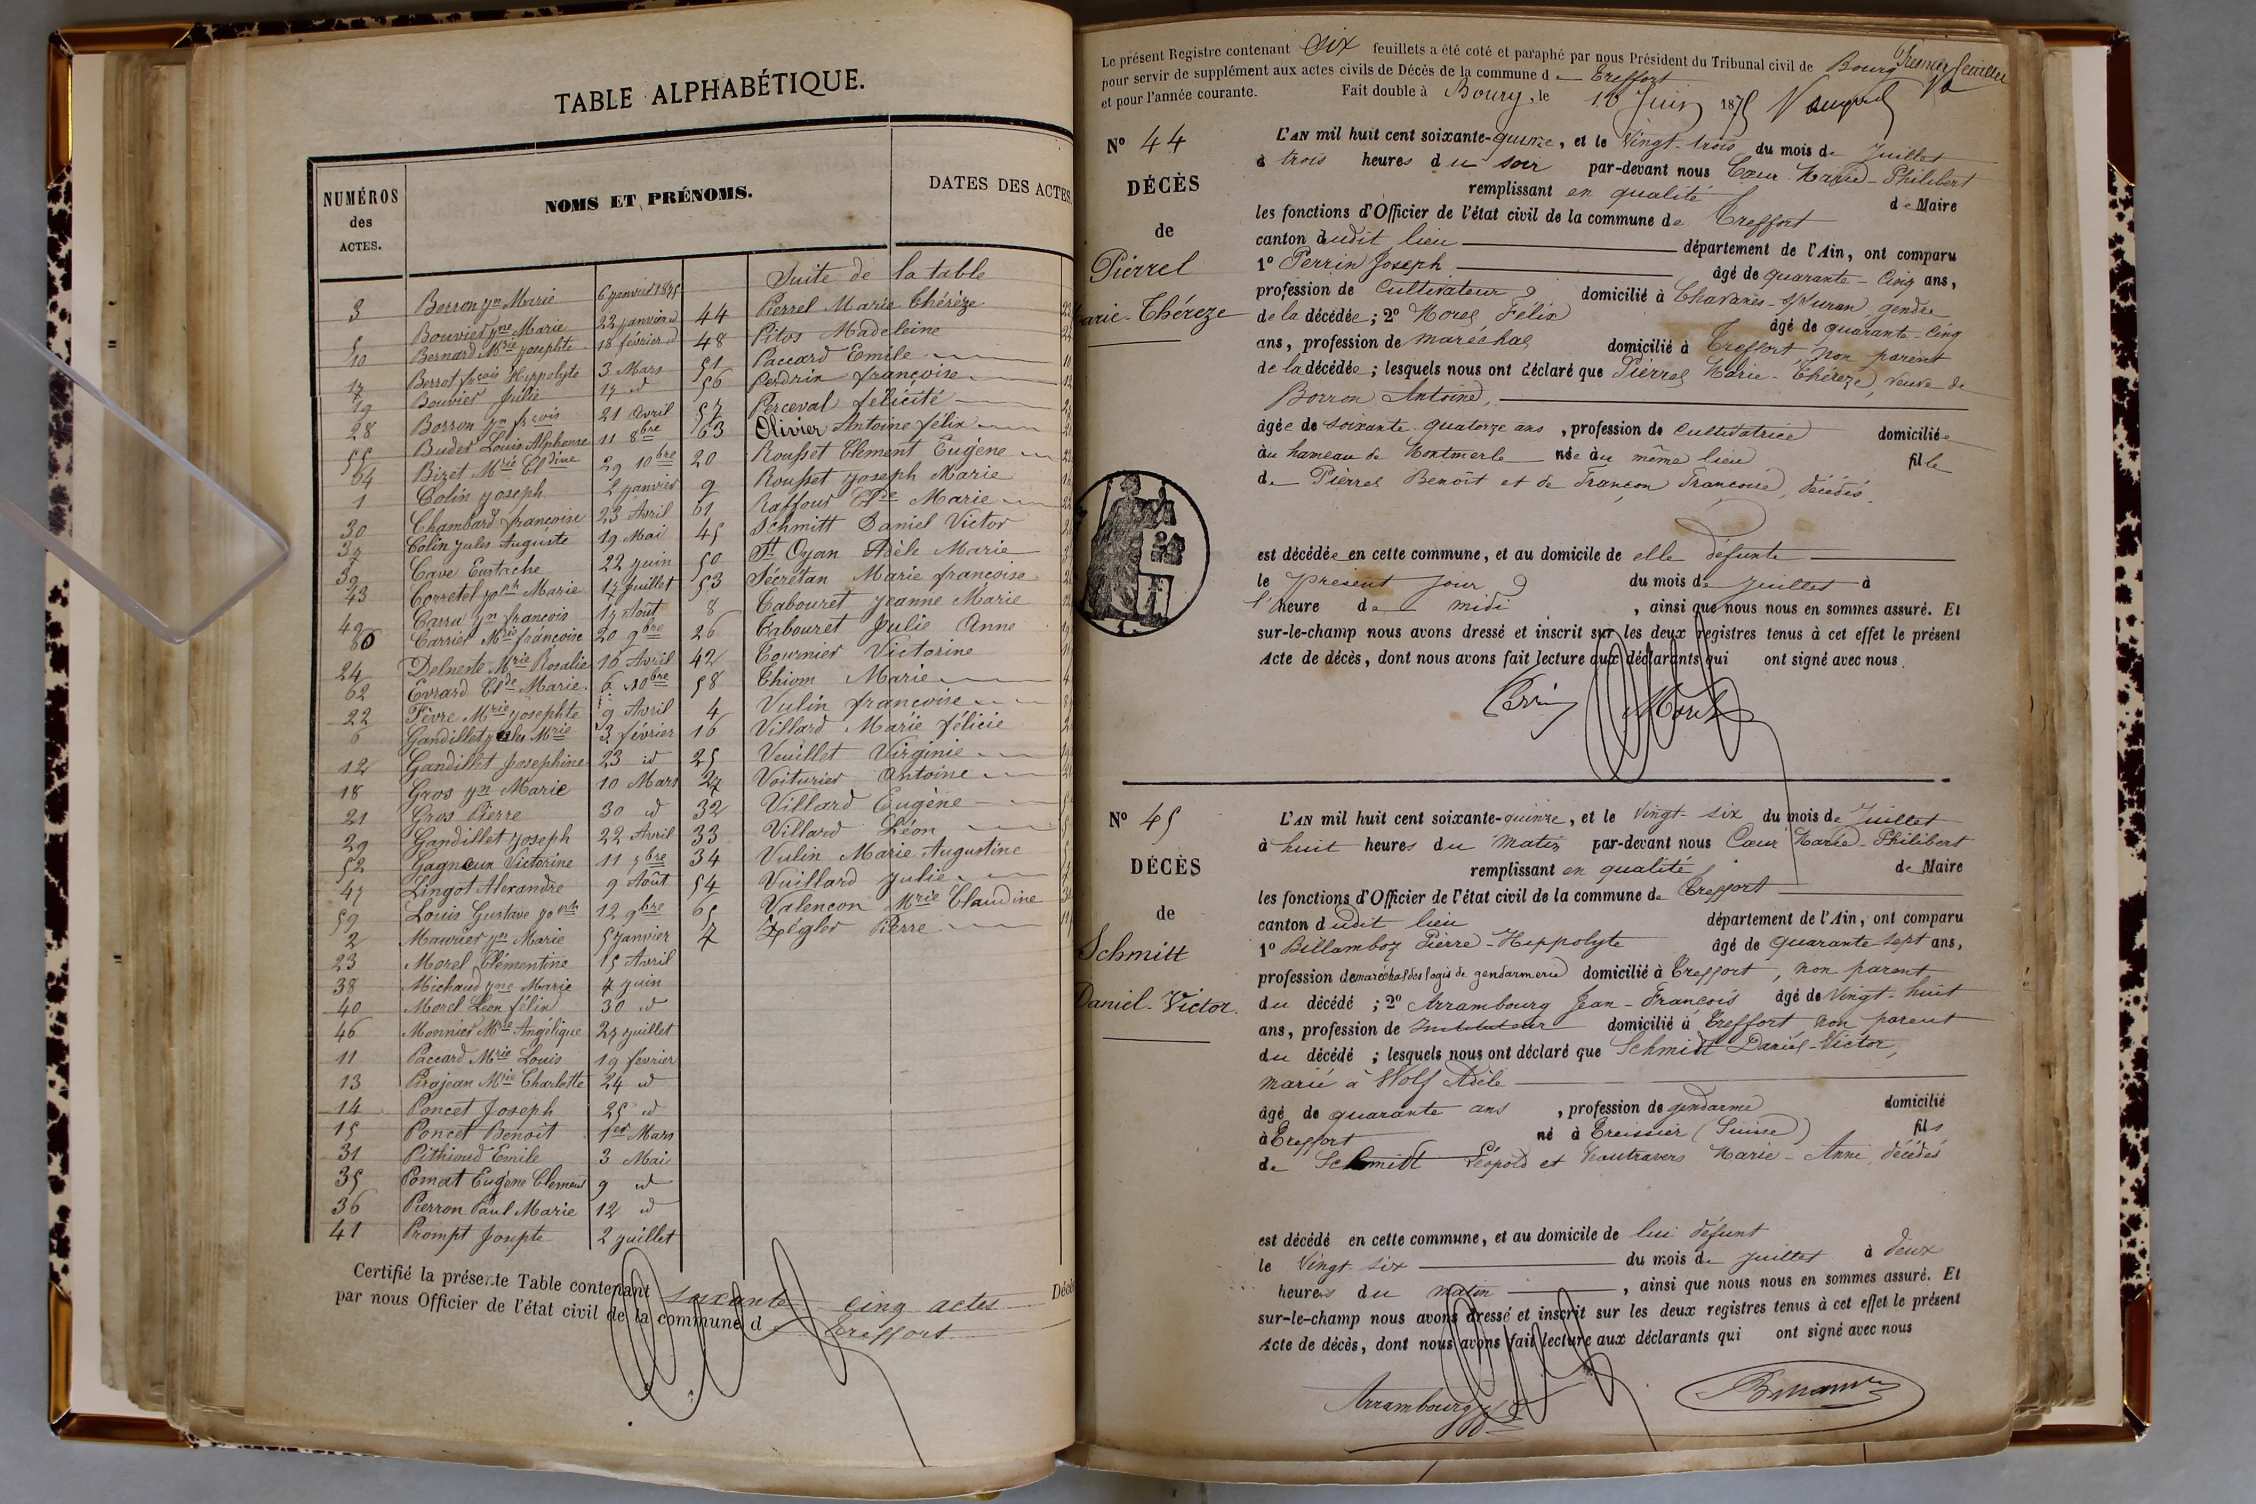 TABLE ALPHABÉTIQUE.
NUMÉROS
des
ACTES.
NOMS ET PRÉNOMS.
DATES DES ACTES.
Suite de la table
3 Borron Jn Marie 6 janvier 1875
5 Bouvier Jne Marie 22 janvier id
10 Bernard Mrie Josephte 18 février id
17 Berrot fçois Hippolyte 3 Mars
19 Bouvier Julie 17 id
28 Borron Jn fçois 21 Avril
55 Buder Louis Alphonse 11 8bre
64 Bizet Mrie Cldine 29 10bre
1 Colin Joseph 2 janvier
30 Chambard françoise 23 Avril
37 Colin Jules Auguste 19 Mai
39 Cave Eustache 22 juin
43 Corretel Joph Marie 17 juillet
49 Carra Jn françois 17 Août
60 Carrier Mrie françoise 20 9bre
24 Delneste Mrie Rosalie 16 Avril
62 Evrard Clde Marie 6 10bre
22 Fèvre Mrie Josephte 9 Avril
6 Gandillet Jules Mrie 3 février
12 Gandillet Josephine 23 id
18 Gros Jn Marie 10 Mars
21 Gros Pierre 30 id
29 Gandillet Joseph 22 Avril
52 Gagneux Victorine 11 7bre
47 Lingot Alexandre 9 Août
59 Louis Gustave Joseph 12 9bre
2 Maurier Jn Marie 5 janvier
23 Morel Clémentine 15 Avril
38 Michaud Jne Marie 4 juin
40 Morel Léon félix 30 id
46 Monnier Mrie Angélique 27 juillet
11 Paccard Mrie Louis 19 février
13 Pirojean Mrie Charlotte 24 id
14 Poncet Joseph 25 id
15 Poncet Benoit 1er Mars
31 Pithioud Emile 3 Mai
35 Pomat Eugène Clement 9 id
36 Pierron Paul Marie 12 id
41 Prompt Josepte 2 juillet
44 Pierrel Marie Thérèze
48 Pitos Madeleine
51 Paccard Emile
56 Perdrix françoise
57 Perceval félicité
63 Olivier Antoine félix
20 Rousset Clément Eugène
9 Rousset Joseph Marie
61 Raffour Clde Marie
45 Schmitt Daniel Victor
50 St Oyan Adèle Marie
53 Sécrétan Marie françoise
8 Tabouret Jeanne Marie
26 Tabouret Julie Anne
42 Tournier Victorine
58 Thiom Marie
4 Vulin françoise
16 Villard Marie félicie
25 Veuillet Virginie
27 Voiturier Antoine
32 Villard Eugène
33 Villard Léon
34 Vulin Marie Augustine
54 Vuillard Julie
65 Valencon Mrie Claudine
7 Zégler Pierre
Certifié la présente Table contenant soixante cinq actes Décès
par nous Officier de l'état civil de la commune d Treffort
Le présent Registre contenant Six feuillets a été coté et paraphé par nous Président du Tribunal civil de Bourg Premier feuillet
pour servir de supplément aux actes civils de Décès de la commune d Treffort
et pour l'année courante. Fait double à Bourg, le 16 Juin 1875
N° 44
DÉCÈS
de
Pierrel
Marie-Théreze
L'AN mil huit cent soixante-quinze, et le Vingt-trois du mois de Juillet
à trois heures du soir par-devant nous Cœur Marie-Philibert
remplissant en qualité de Maire
les fonctions d'Officier de l'état civil de la commune de Treffort
canton dudit lieu département de l'Ain, ont comparu
1° Perrin Joseph âgé de quarante-Cinq ans,
profession de Cultivateur domicilié à Chavanes-s/Suran, gendre
de la décédée; 2° Morel Félix âgé de quarante-cinq
ans, profession de maréchal domicilié à Treffort, non parent
de la décédée; lesquels nous ont déclaré que Pierrel Marie-Théreze, veuve de
Borron Antoine,
âgée de soixante quatorze ans, profession de Cultivatrice domiciliée
au hameau de Montmerle née au même lieu fille
de Pierrel Benoît et de Françon Françoise, décédés.
est décédée en cette commune, et au domicile de elle défunte
le présent jour du mois de Juillet à
l'heure de midi, ainsi que nous nous en sommes assuré. Et
sur-le-champ nous avons dressé et inscrit sur les deux registres tenus à cet effet le présent
Acte de décès, dont nous avons fait lecture aux déclarants qui ont signé avec nous.
Perrin Morel
N° 45
DÉCÈS
de
Schmitt
Daniel-Victor.
L'AN mil huit cent soixante-quinze, et le Vingt-six du mois de Juillet
à huit heures du matin par-devant nous Cœur Marie-Philibert
remplissant en qualité de Maire
les fonctions d'Officier de l'état civil de la commune de Treffort
canton dudit lieu département de l'Ain, ont comparu
1° Billamboz Pierre-Hippolyte âgé de quarante sept ans,
profession de maréchal des logis de gendarmerie domicilié à Treffort, non parent
du décédé; 2° Arrambourg Jean-François âgé de Vingt-huit
ans, profession de Instituteur domicilié à Treffort, non parent
du décédé; lesquels nous ont déclaré que Schmidt Daniel-Victor,
marié à Wolf Adèle
âgé de quarante ans, profession de gendarme domicilié
à Treffort né à Treissier (Suisse) fils
de Schmidt Léopold et Vautravers Marie-Anne, décédés
est décédé en cette commune, et au domicile de lui défunt
le Vingt-six du mois de Juillet à deux
heures du matin, ainsi que nous nous en sommes assuré. Et
sur-le-champ nous avons dressé et inscrit sur les deux registres tenus à cet effet le présent
Acte de décès, dont nous avons fait lecture aux déclarants qui ont signé avec nous
Arrambourg